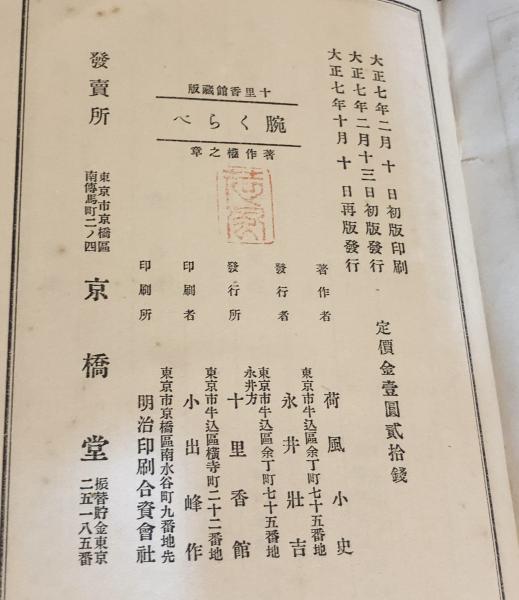 大正七年二月十日初版印刷
大正七年二月十三日初版發行
大正七年十月十日再版發行
定價金壹圓貳拾錢
十里香館藏版
腕くらべ
著作權之章
著作者
東京市牛込區余丁町七十五番地
荷風小史
發行者
東京市牛込區余丁町七十五番地
永井壯吉
發行所
永井方
十里香館
印刷者
東京市牛込區橫寺町二十二番地
小出峰作
印刷所
東京市京橋區南水谷町九番地先
明治印刷合資會社
發賣所
東京市京橋區
南傳馬町二ノ四
京橋堂
振替貯金東京
二五一八五番